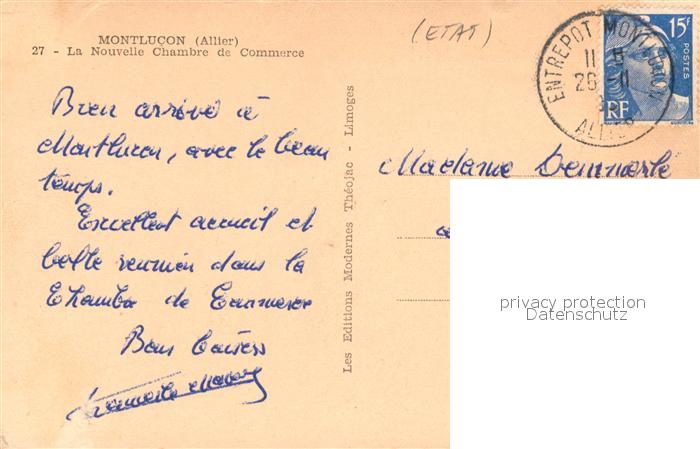 MONTLUÇON (Allier)
27 - La Nouvelle Chambre de Commerce
(ETAT)
ENTREPOT MONTLUÇON
26 - 11
ALLIER
15F
POSTES
RF
Bien arrivé à
Montluçon, avec le beau
temps.
Excellent accueil et
belle réunion dans la
Chambre de Commerce
Bons baisers
Les Editions Modernes Théojac - Limoges
Madame
privacy protection
Datenschutz